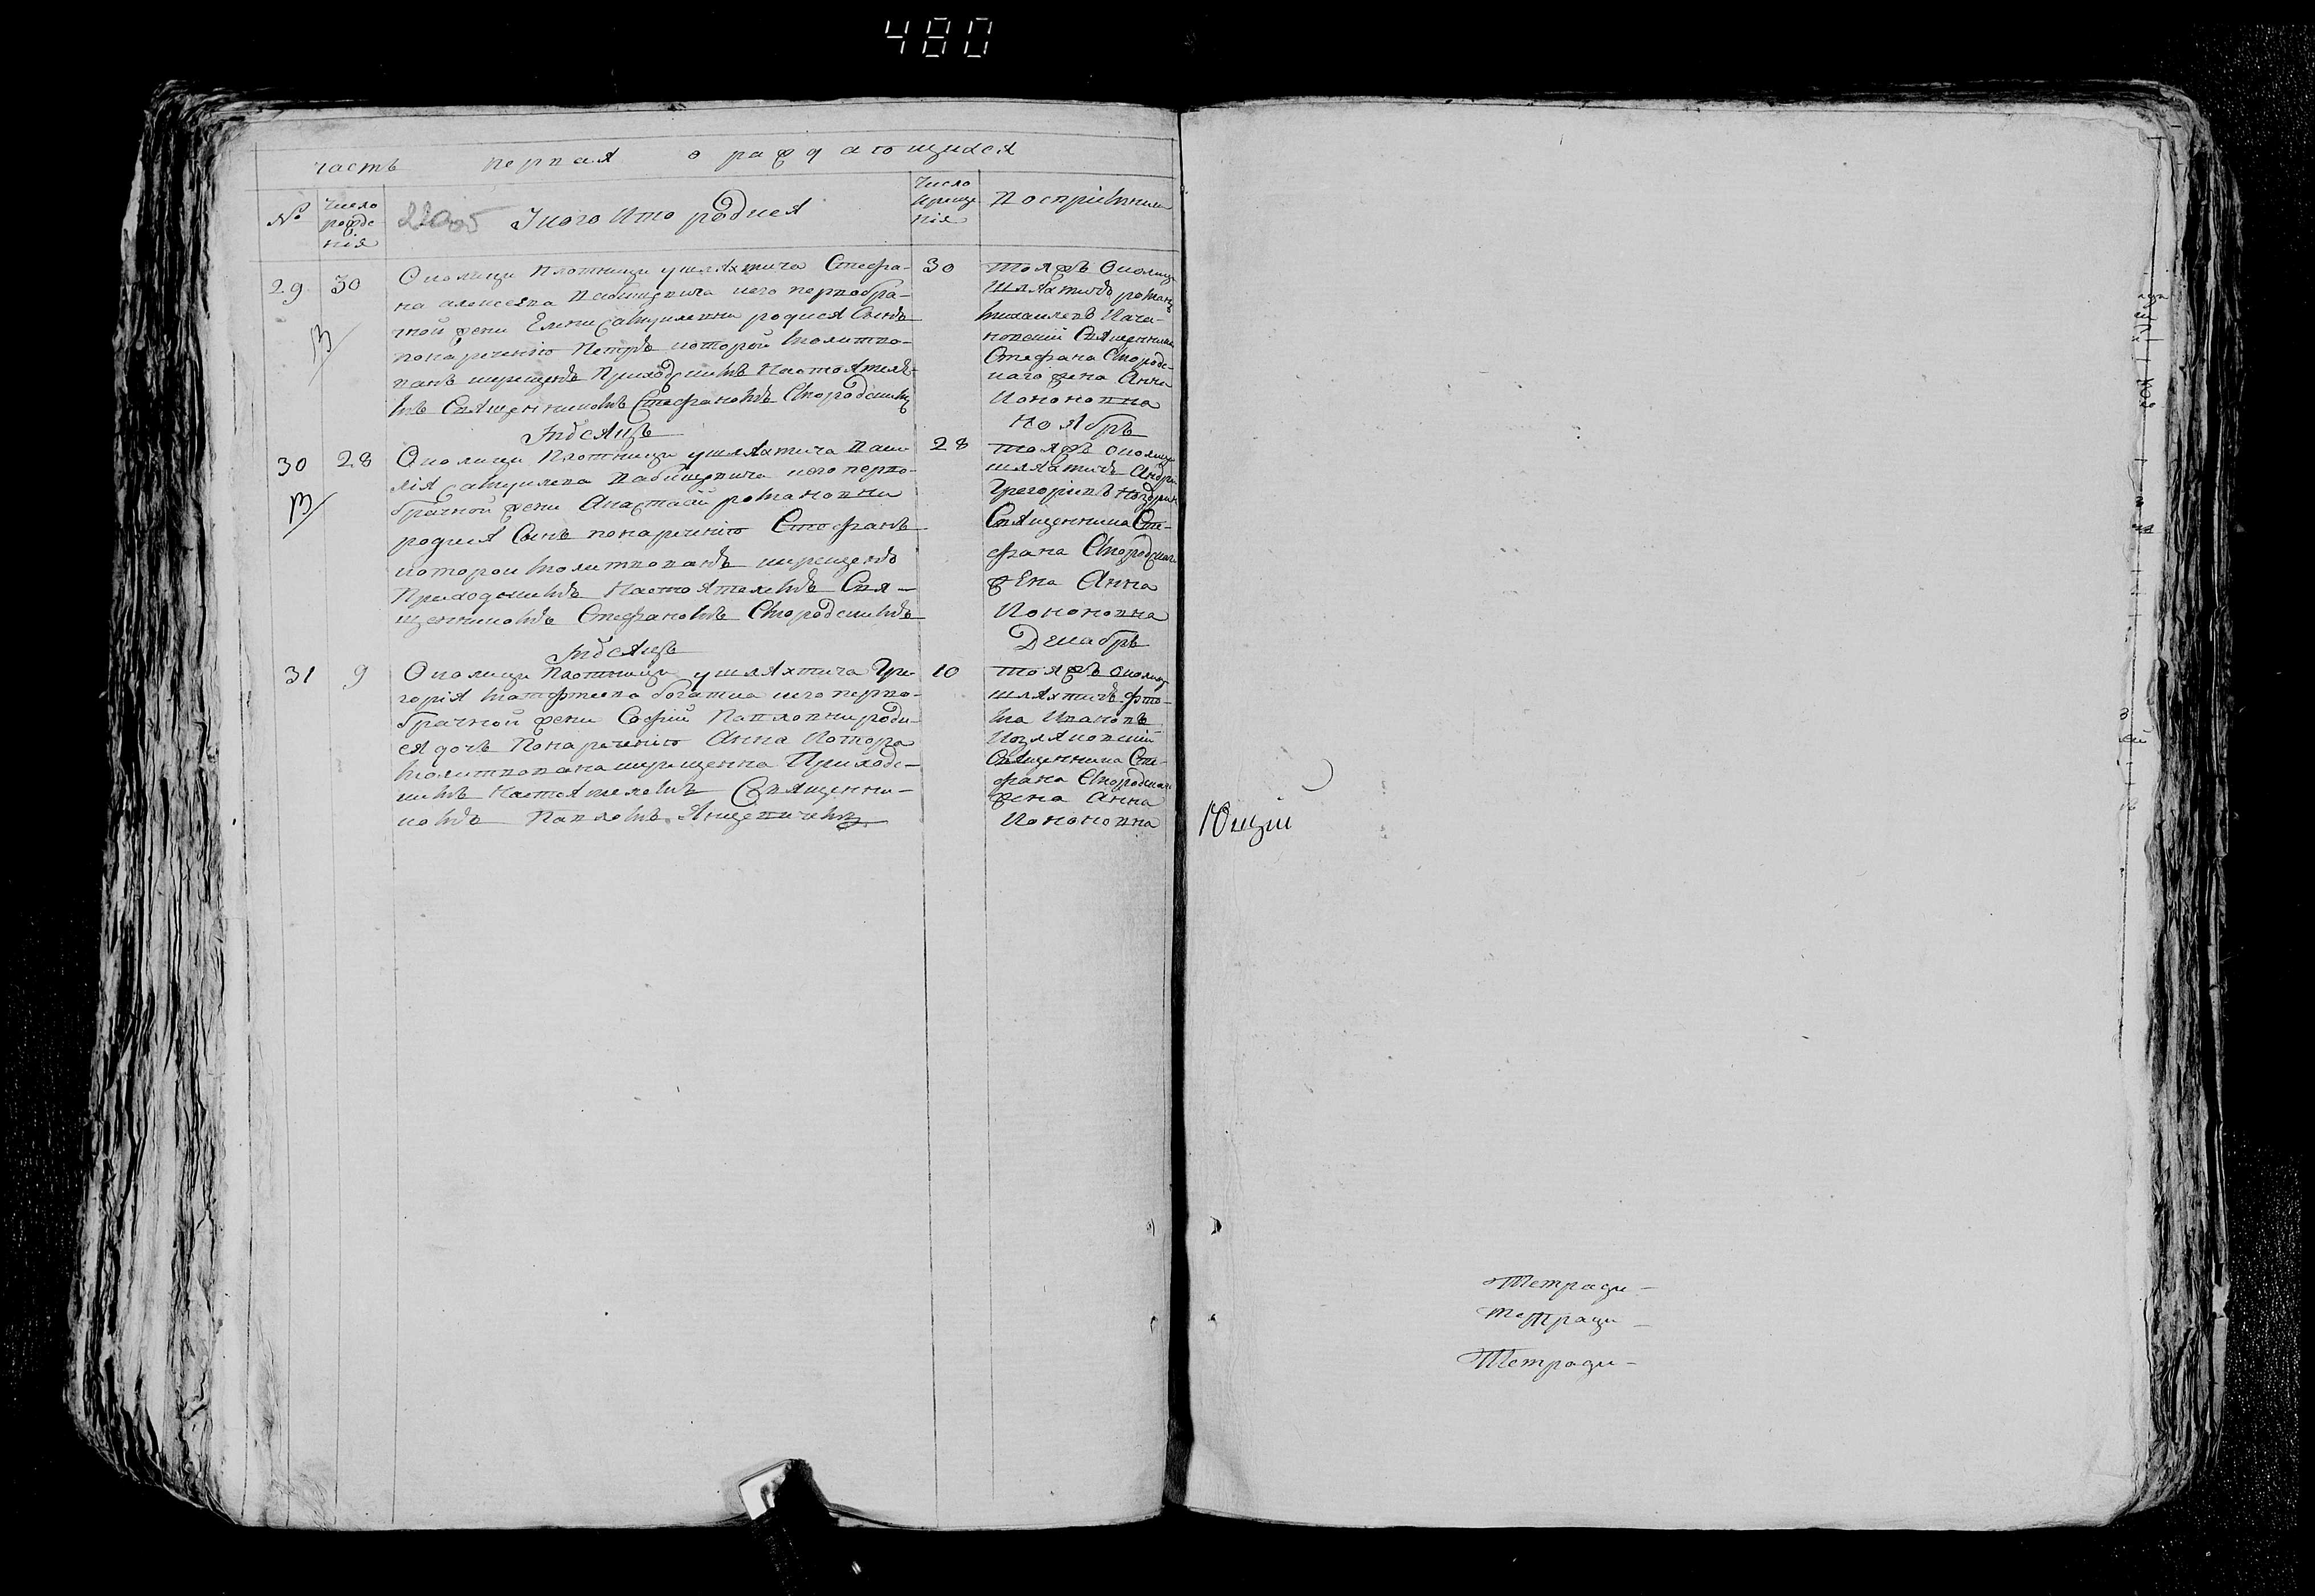 480
часть первая о раждающихся
№
Число рожде нія
У кого кто родися
Число креще нія
Восприемники
29 30
Околици Плотници у шляхтича Стефа-
на алексеева Вабищевича иего первобра-
чной жени Елени самуиловни родися Синъ
понаречению Петръ которой молитво-
ванъ икрещенъ Приходскимъ Настоятеле-
мъ Священникомъ Стефаномъ Смородскимъ
30
тояжъ Околици
шляхтичъ романъ
михаилевъ
Священника
Стефана Смородс-
каго жена Анна
Кононовна
Мѣсяцъ Ноябръ
30 28
Околици Плотници у шляхтича Васи-
лія самуилева Вабищевича иего перво-
брачной жени Анастасіи романовни
родися Синъ понаречению Стефанъ
которой молитвованъ икрещенъ
Приходскимъ Настоятелемъ Свя-
щенникомъ Стефаномъ Смородскимъ
28
тояжъ околици
шляхтичъ Андрей
Грегоріевъ
Священника Сте-
фана Смородскаго
жена Анна
Кононовна
Мѣсяцъ Декабръ
31 9
Околици Плотници у шляхтича Гри-
горія матфеева богатка иего перво-
брачной жени Софіи Павловни роди-
ся дочь Понаречению Анна Котора
молитвована икрещенна Приходс-
кимъ Настоятелемъ Священни-
комъ Павломъ Янцевичемъ
10
тояжъ Околици
шляхтичъ фто-
ма Ивановъ
Козляковскій
Священника Сте-
фана Смородскаго
жена Анна
Кононовна
Ющій
Тетради-
тетради-
Тетради-